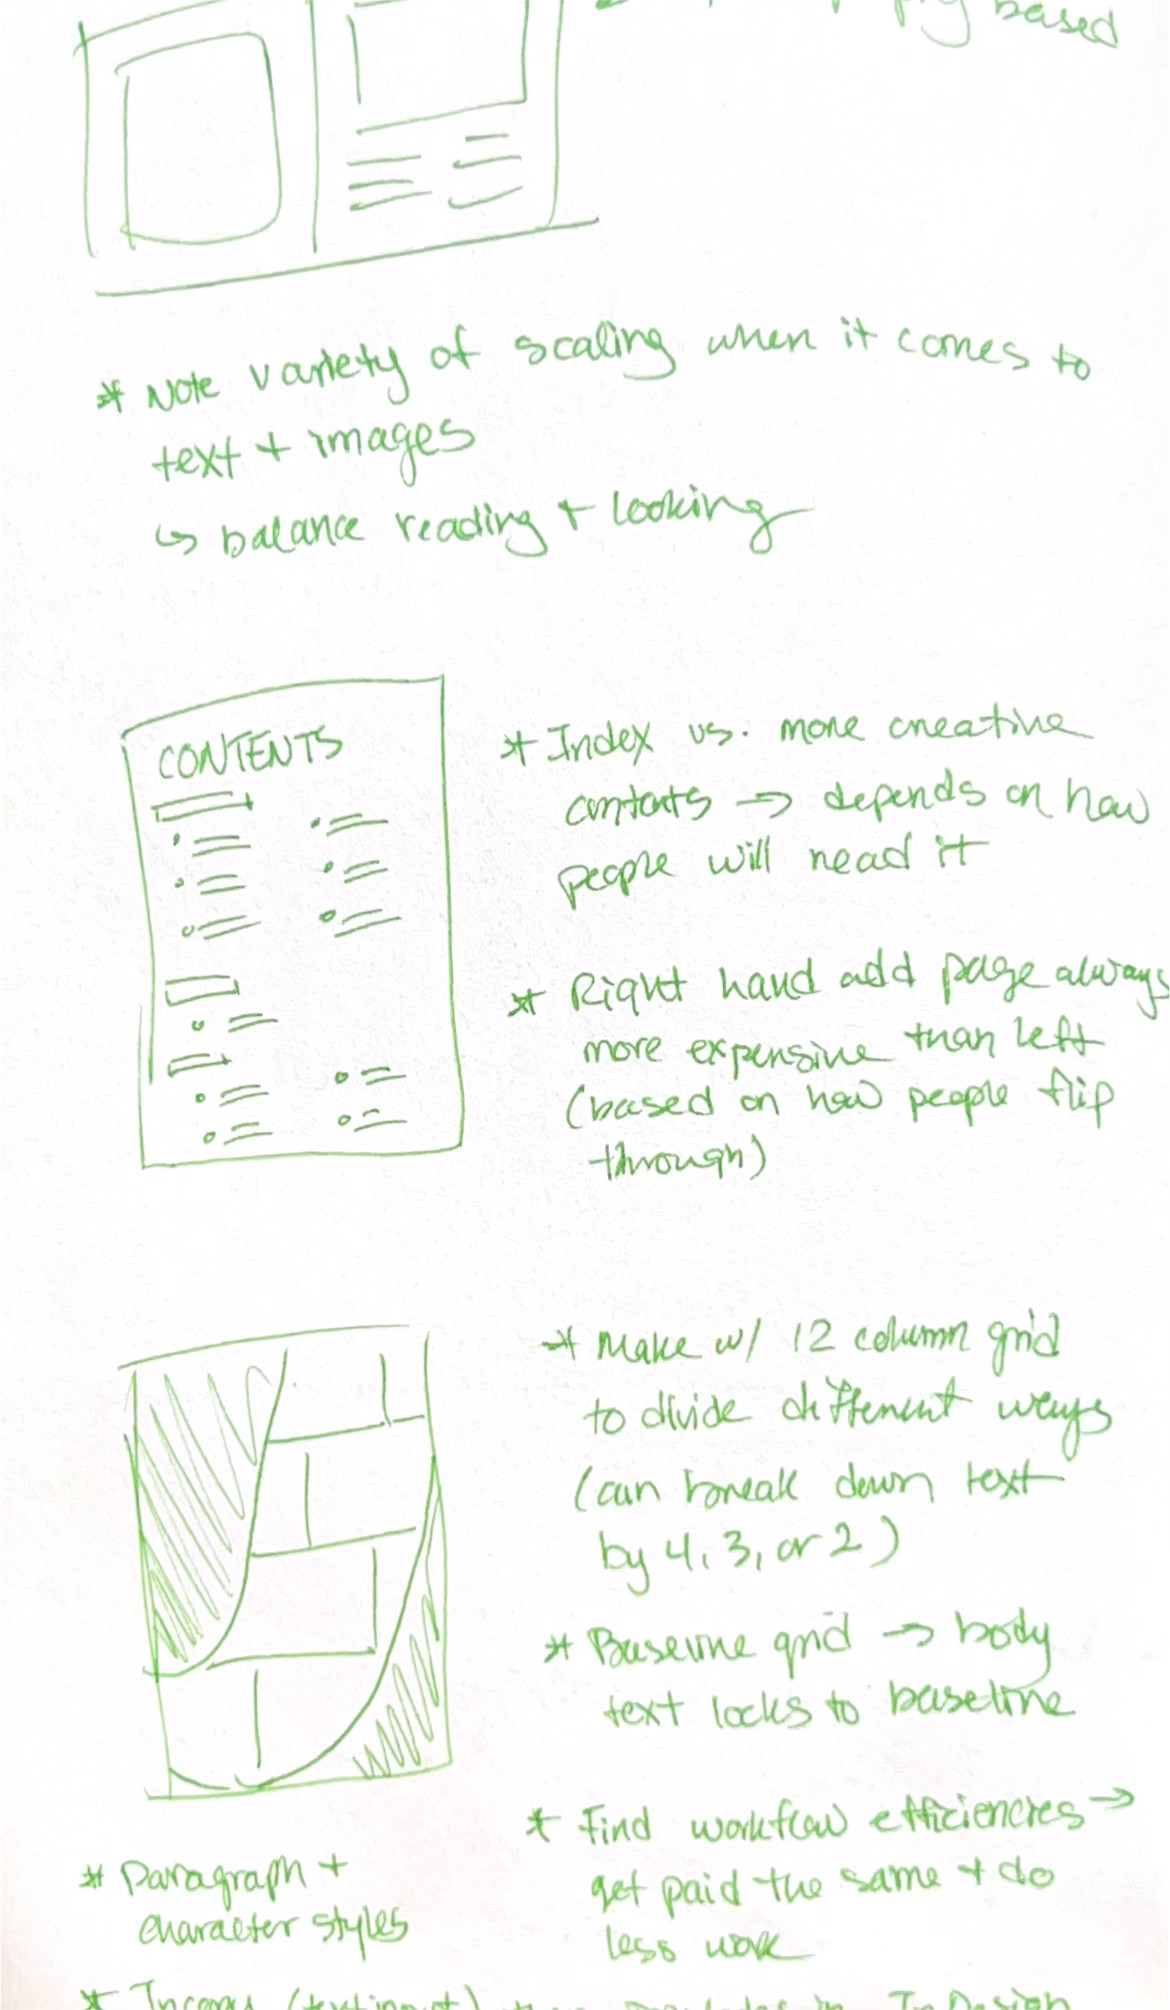 based
* Note variety of scaling when it comes to
text + images
↳ balance reading + looking
CONTENTS
* Index vs. more creative
contents → depends on how
people will read it
* Right hand add page always
more expensive than left
(based on how people flip
through)
* Make w/ 12 column grid
to divide different ways
(can break down text
by 4, 3, or 2)
* Baseline grid → body
text locks to baseline
* Find workflow efficiencies →
get paid the same + do
less work
* Paragraph +
character styles
* InDesign